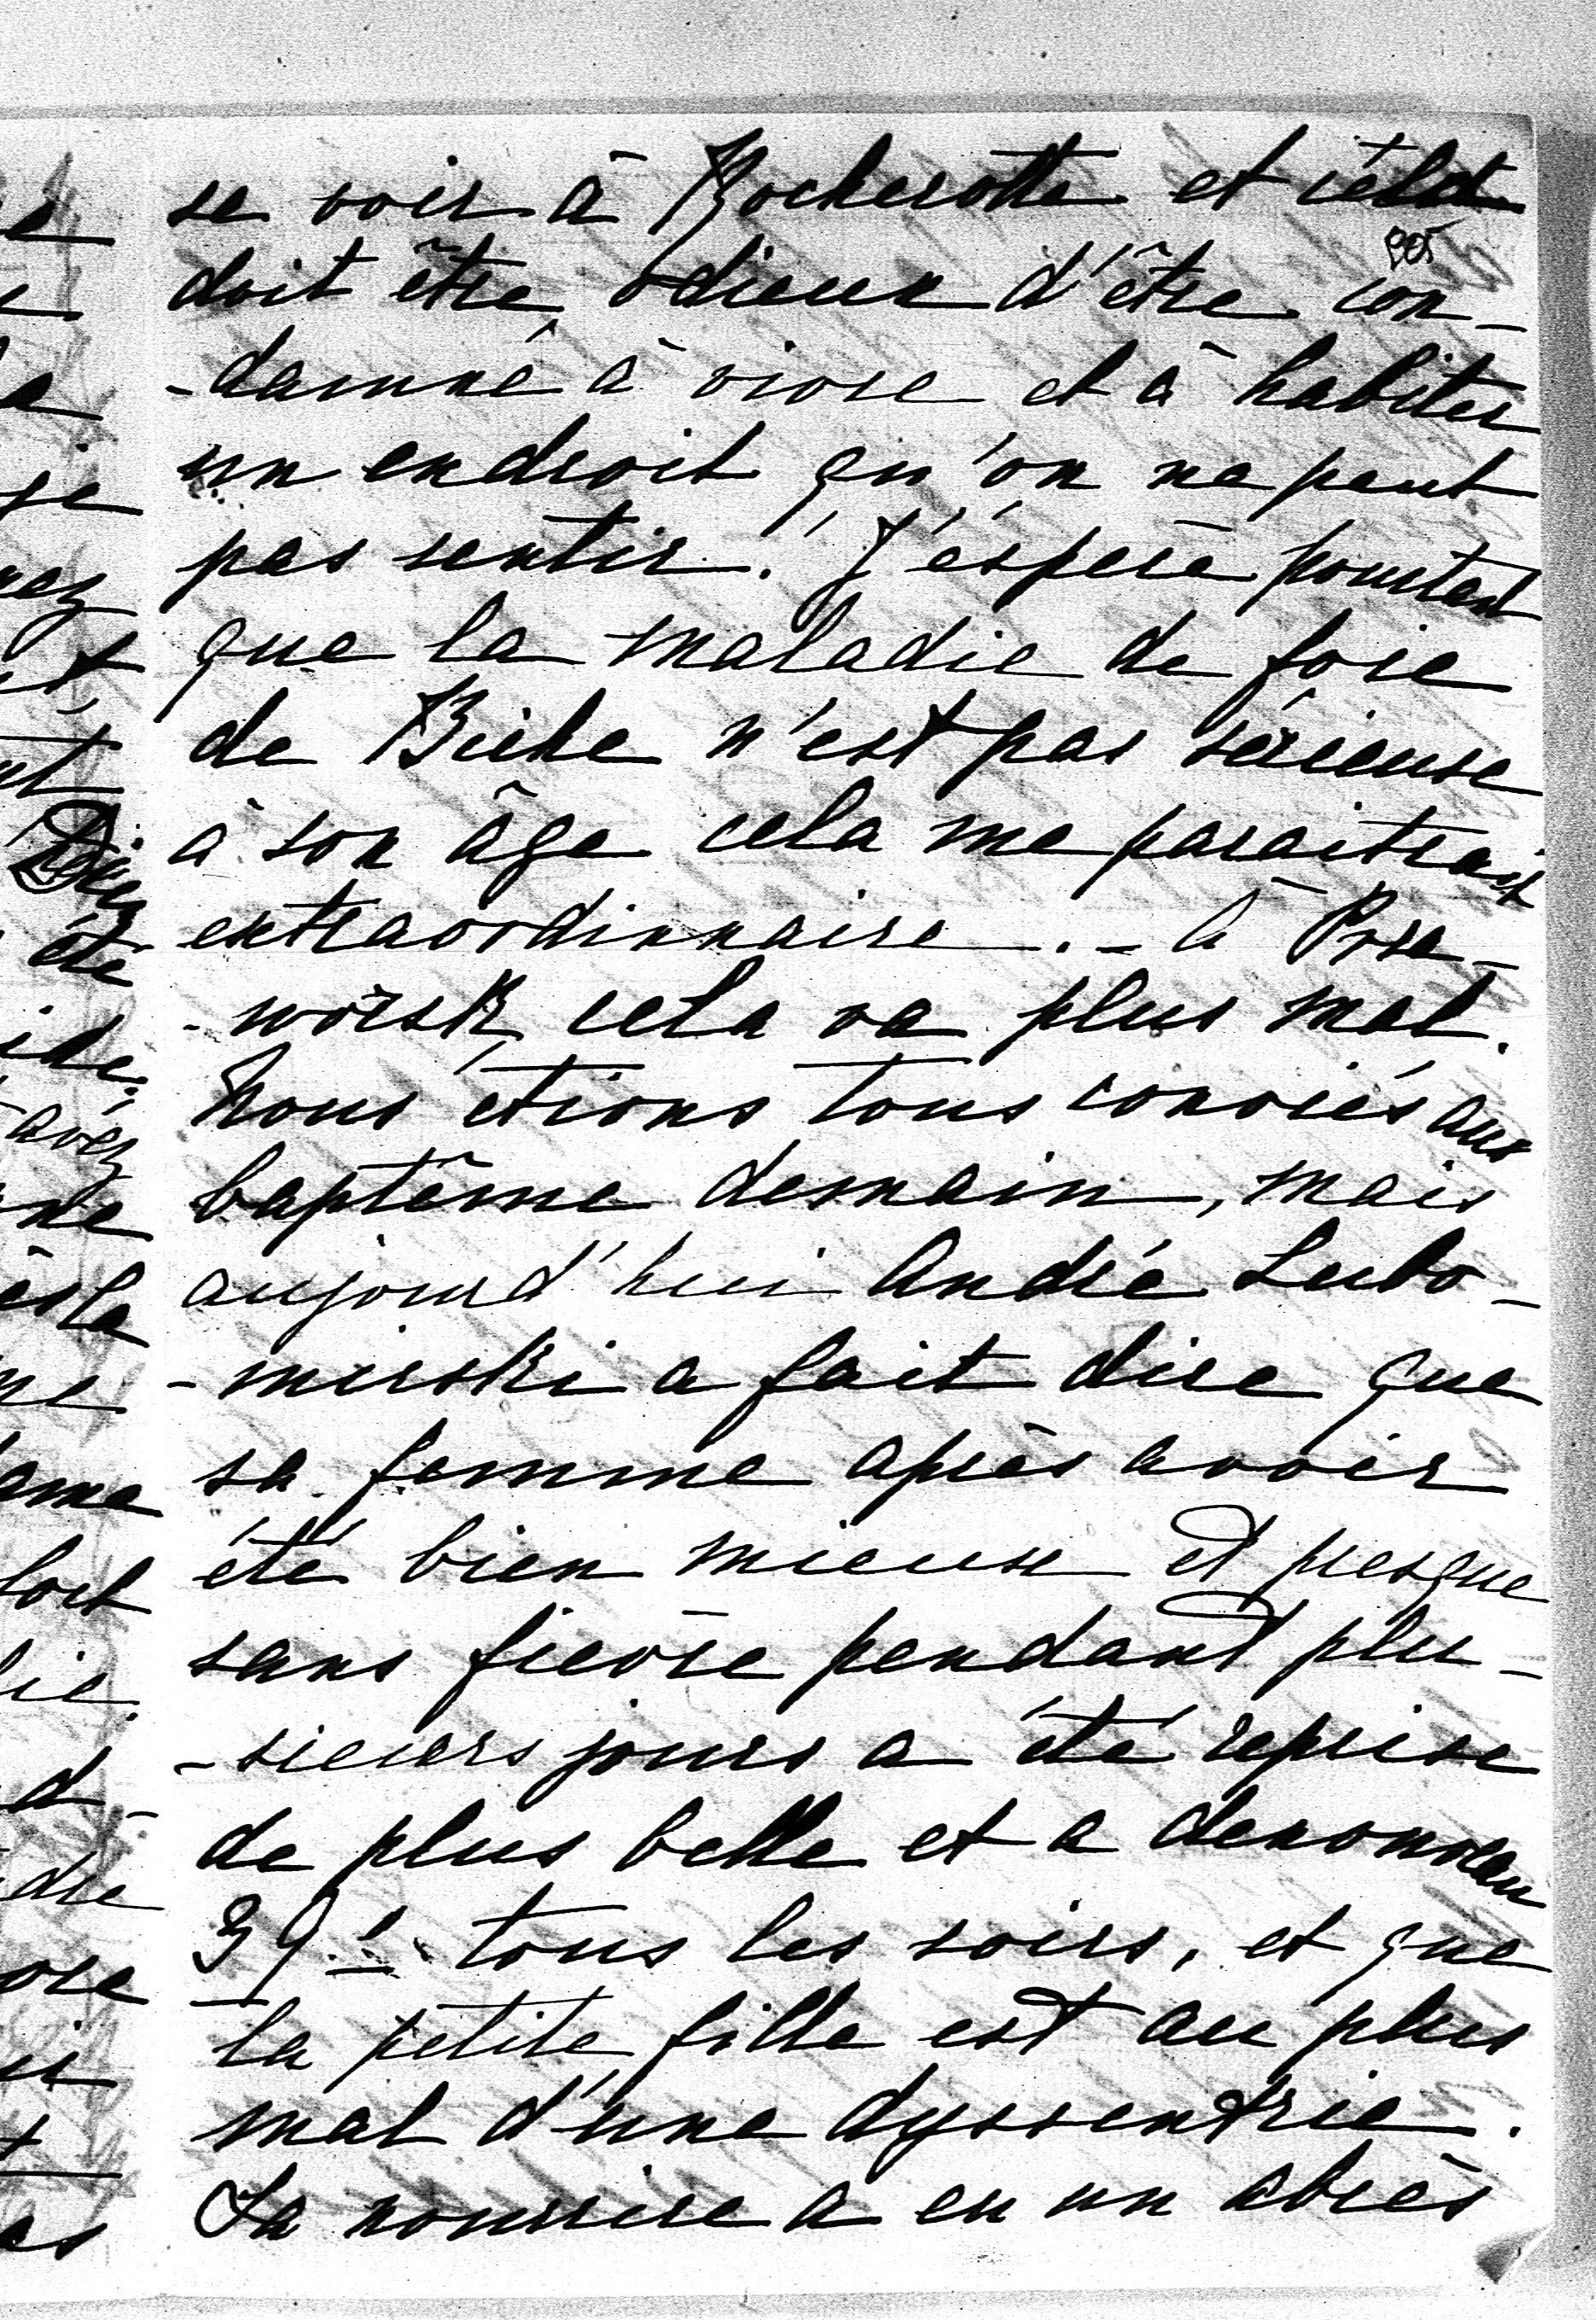 se voir à Rocherotte et cela
doit être odieux d'être con-
-damné à vivre et à habiter
un endroit qu'on ne peut
pas sentir. J'éspère pourtant
que la maladie de foie
de Biche n'est pas sérieuse
à son âge cela me paraitrait
extraordinnaire. - à Prze-
-worsk cela va plus mal.
Nous étions tous conviés aux
baptême demain, mais
aujourd'hui André Lubo-
-mirski a fait dire que
sa femme après avoir
été bien mieux et presque
sans fièvre pendant plu-
-sieurs jours a été reprise
de plus belle et a denouveau
39.1 tous les soirs, et que
la petite fille est au plus
mal d'une dyssentrie.
Sa nourrice a eu un abcès